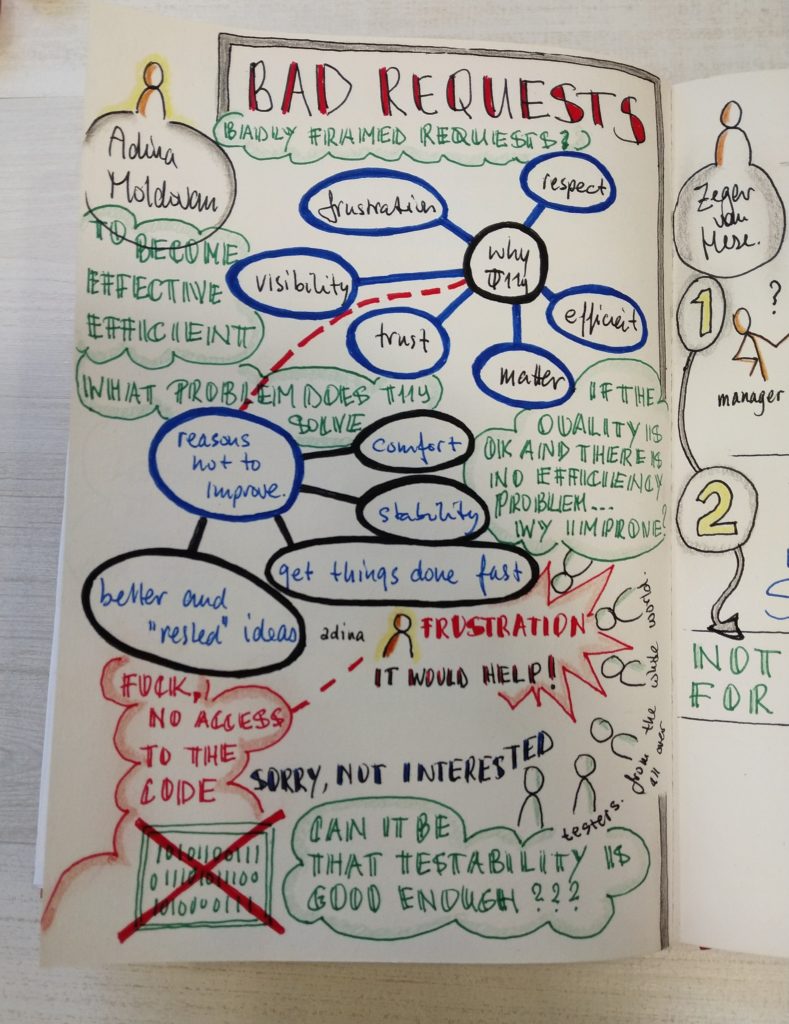 BAD REQUESTS
BADLY FRAMED REQUESTS?
Adina
Moldovan
TO BECOME
EFFECTIVE
EFFICIENT
frustration
respect
why
T11y
visibility
trust
matter
efficient
WHAT PROBLEM DOES T11Y
SOLVE
reasons
not to
improve.
comfort
stability
get things done fast
better and
"rested" ideas
IF THE
QUALITY IS
OK AND THERE IS
NO EFFICIENCY
PROBLEM...
WY IMPROVE?
adina
FRUSTRATION
IT WOULD HELP!
FUCK,
NO ACCESS
TO THE
CODE
SORRY, NOT INTERESTED
testers.
from the whole world.
all over
10101100111
01110101100
1010000111
CAN IT BE
THAT TESTABILITY IS
GOOD ENOUGH ???
Zeger
van
Hese.
1
?
manager
2
NOT
FOR